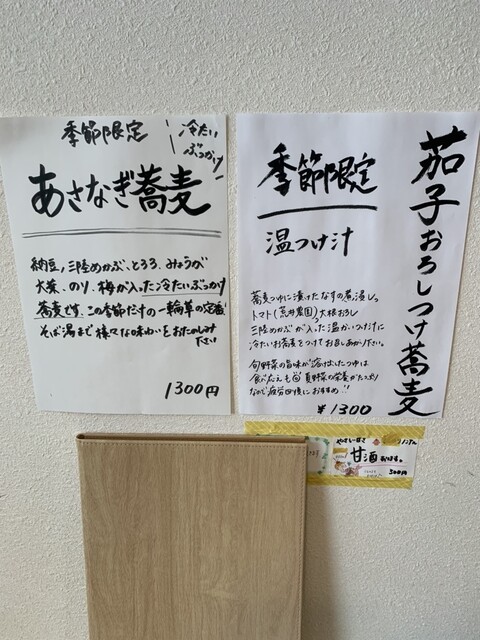 季節限定
冷たい
ぶっかけ
あさなぎ蕎麦
納豆、三陸めかぶ、とろろ、みょうが
大葉、のり、梅が入った冷たいぶっかけ
蕎麦です。この季節だけの一輪草の定番
そば湯まで様々な味わいをおたのしみ
下さい
1300円
茄子おろしつけ蕎麦
季節限定
温つけ汁
蕎麦つゆに漬けたなすの煮浸し
トマト(荒井農園)、大根おろし
三陸めかぶが入った温かいつけ汁に
冷たいお蕎麦をつけてお召しあがり下さい。
旬野菜の旨味が溶け出したつゆは
食べ応えも◎ 夏野菜の栄養がたっぷり
なので疲労回復におすすめ!!
¥1300
やさしい甘さ
ノンアル
甘酒あります。
500円